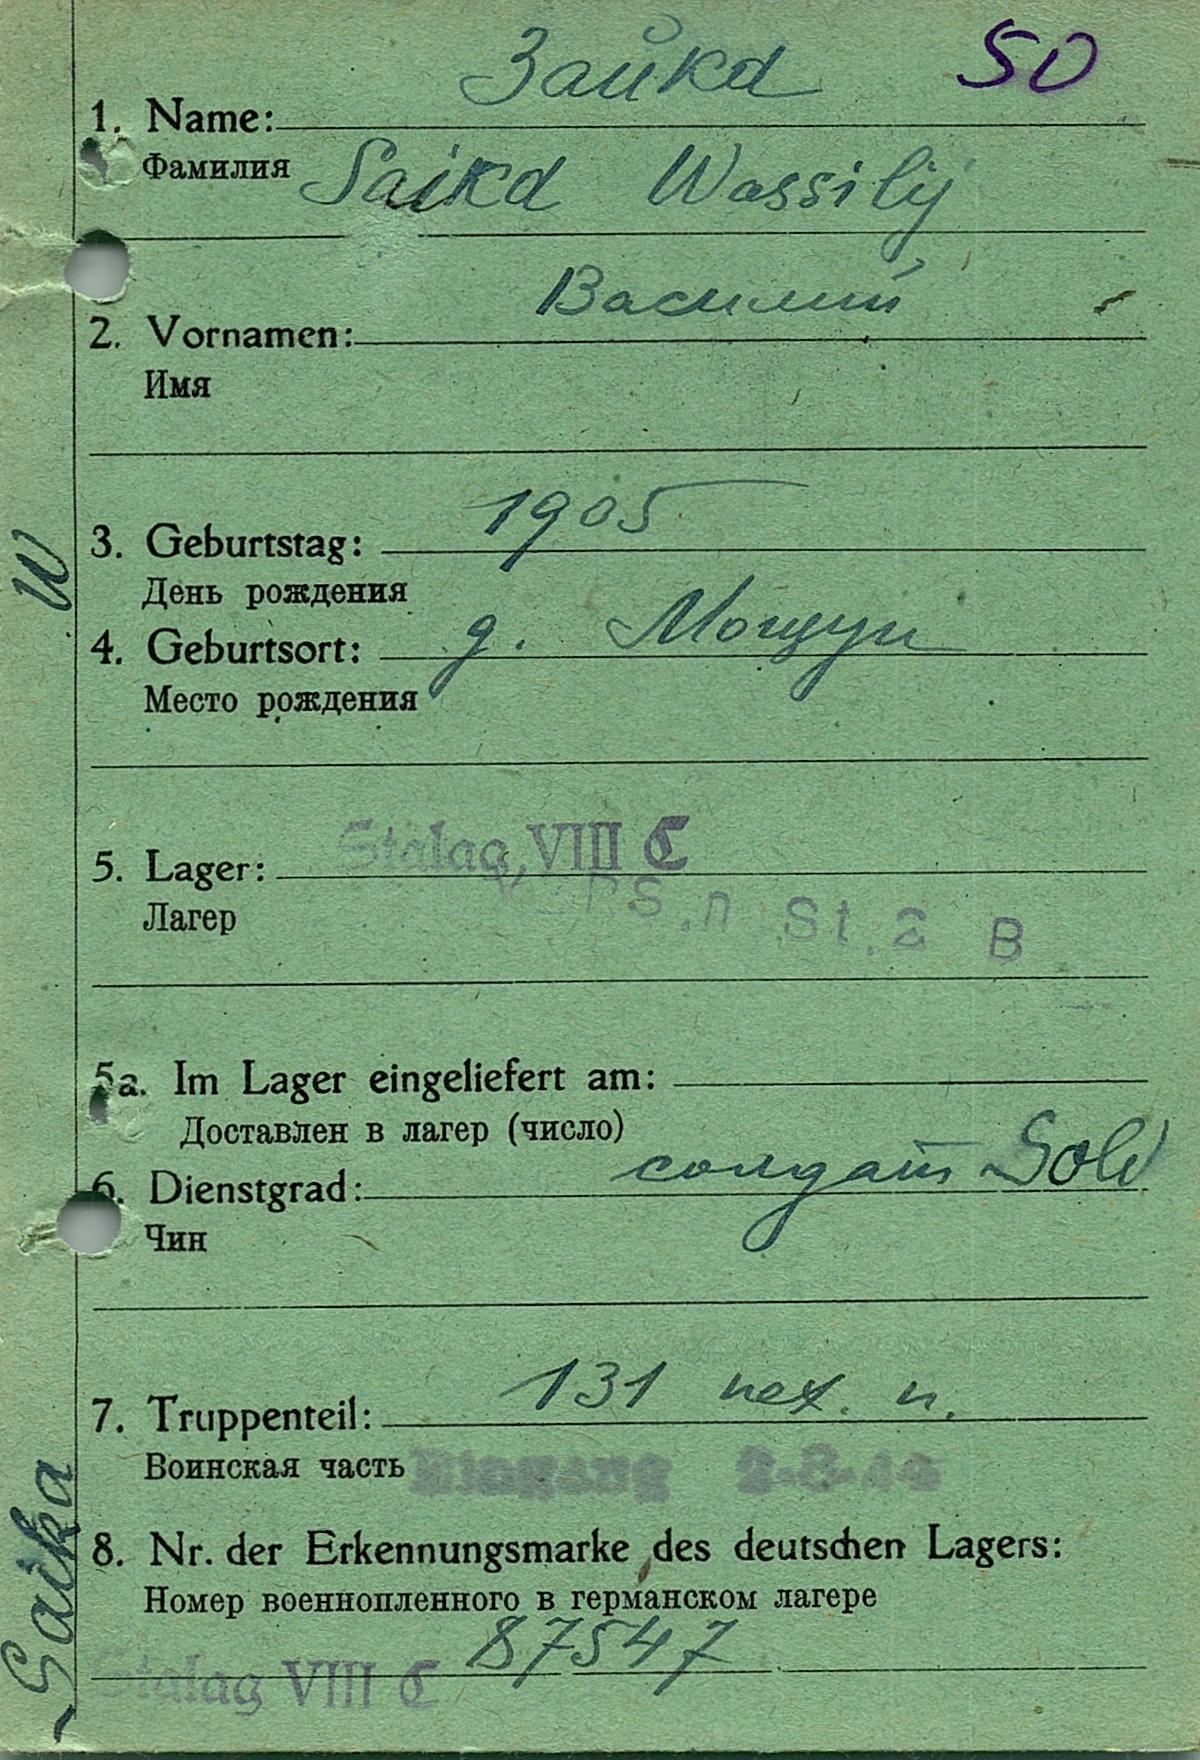 Зайка 50
1. Name:
Фамилия Saika Wassilij
Василий
2. Vornamen:
Имя
1905
3. Geburtstag:
День рождения
4. Geburtsort: д. Мощун
Место рождения
5. Lager: Stalag VIII C
Лагер
B
5a. Im Lager eingeliefert am:
Доставлен в лагер (число)
6. Dienstgrad: солдат Sold
Чин
131 пех. п.
7. Truppenteil:
Воинская часть Eingang
8. Nr. der Erkennungsmarke des deutschen Lagers:
Номер военнопленного в германском лагере
87547
Stalag VIII C
W
Saika